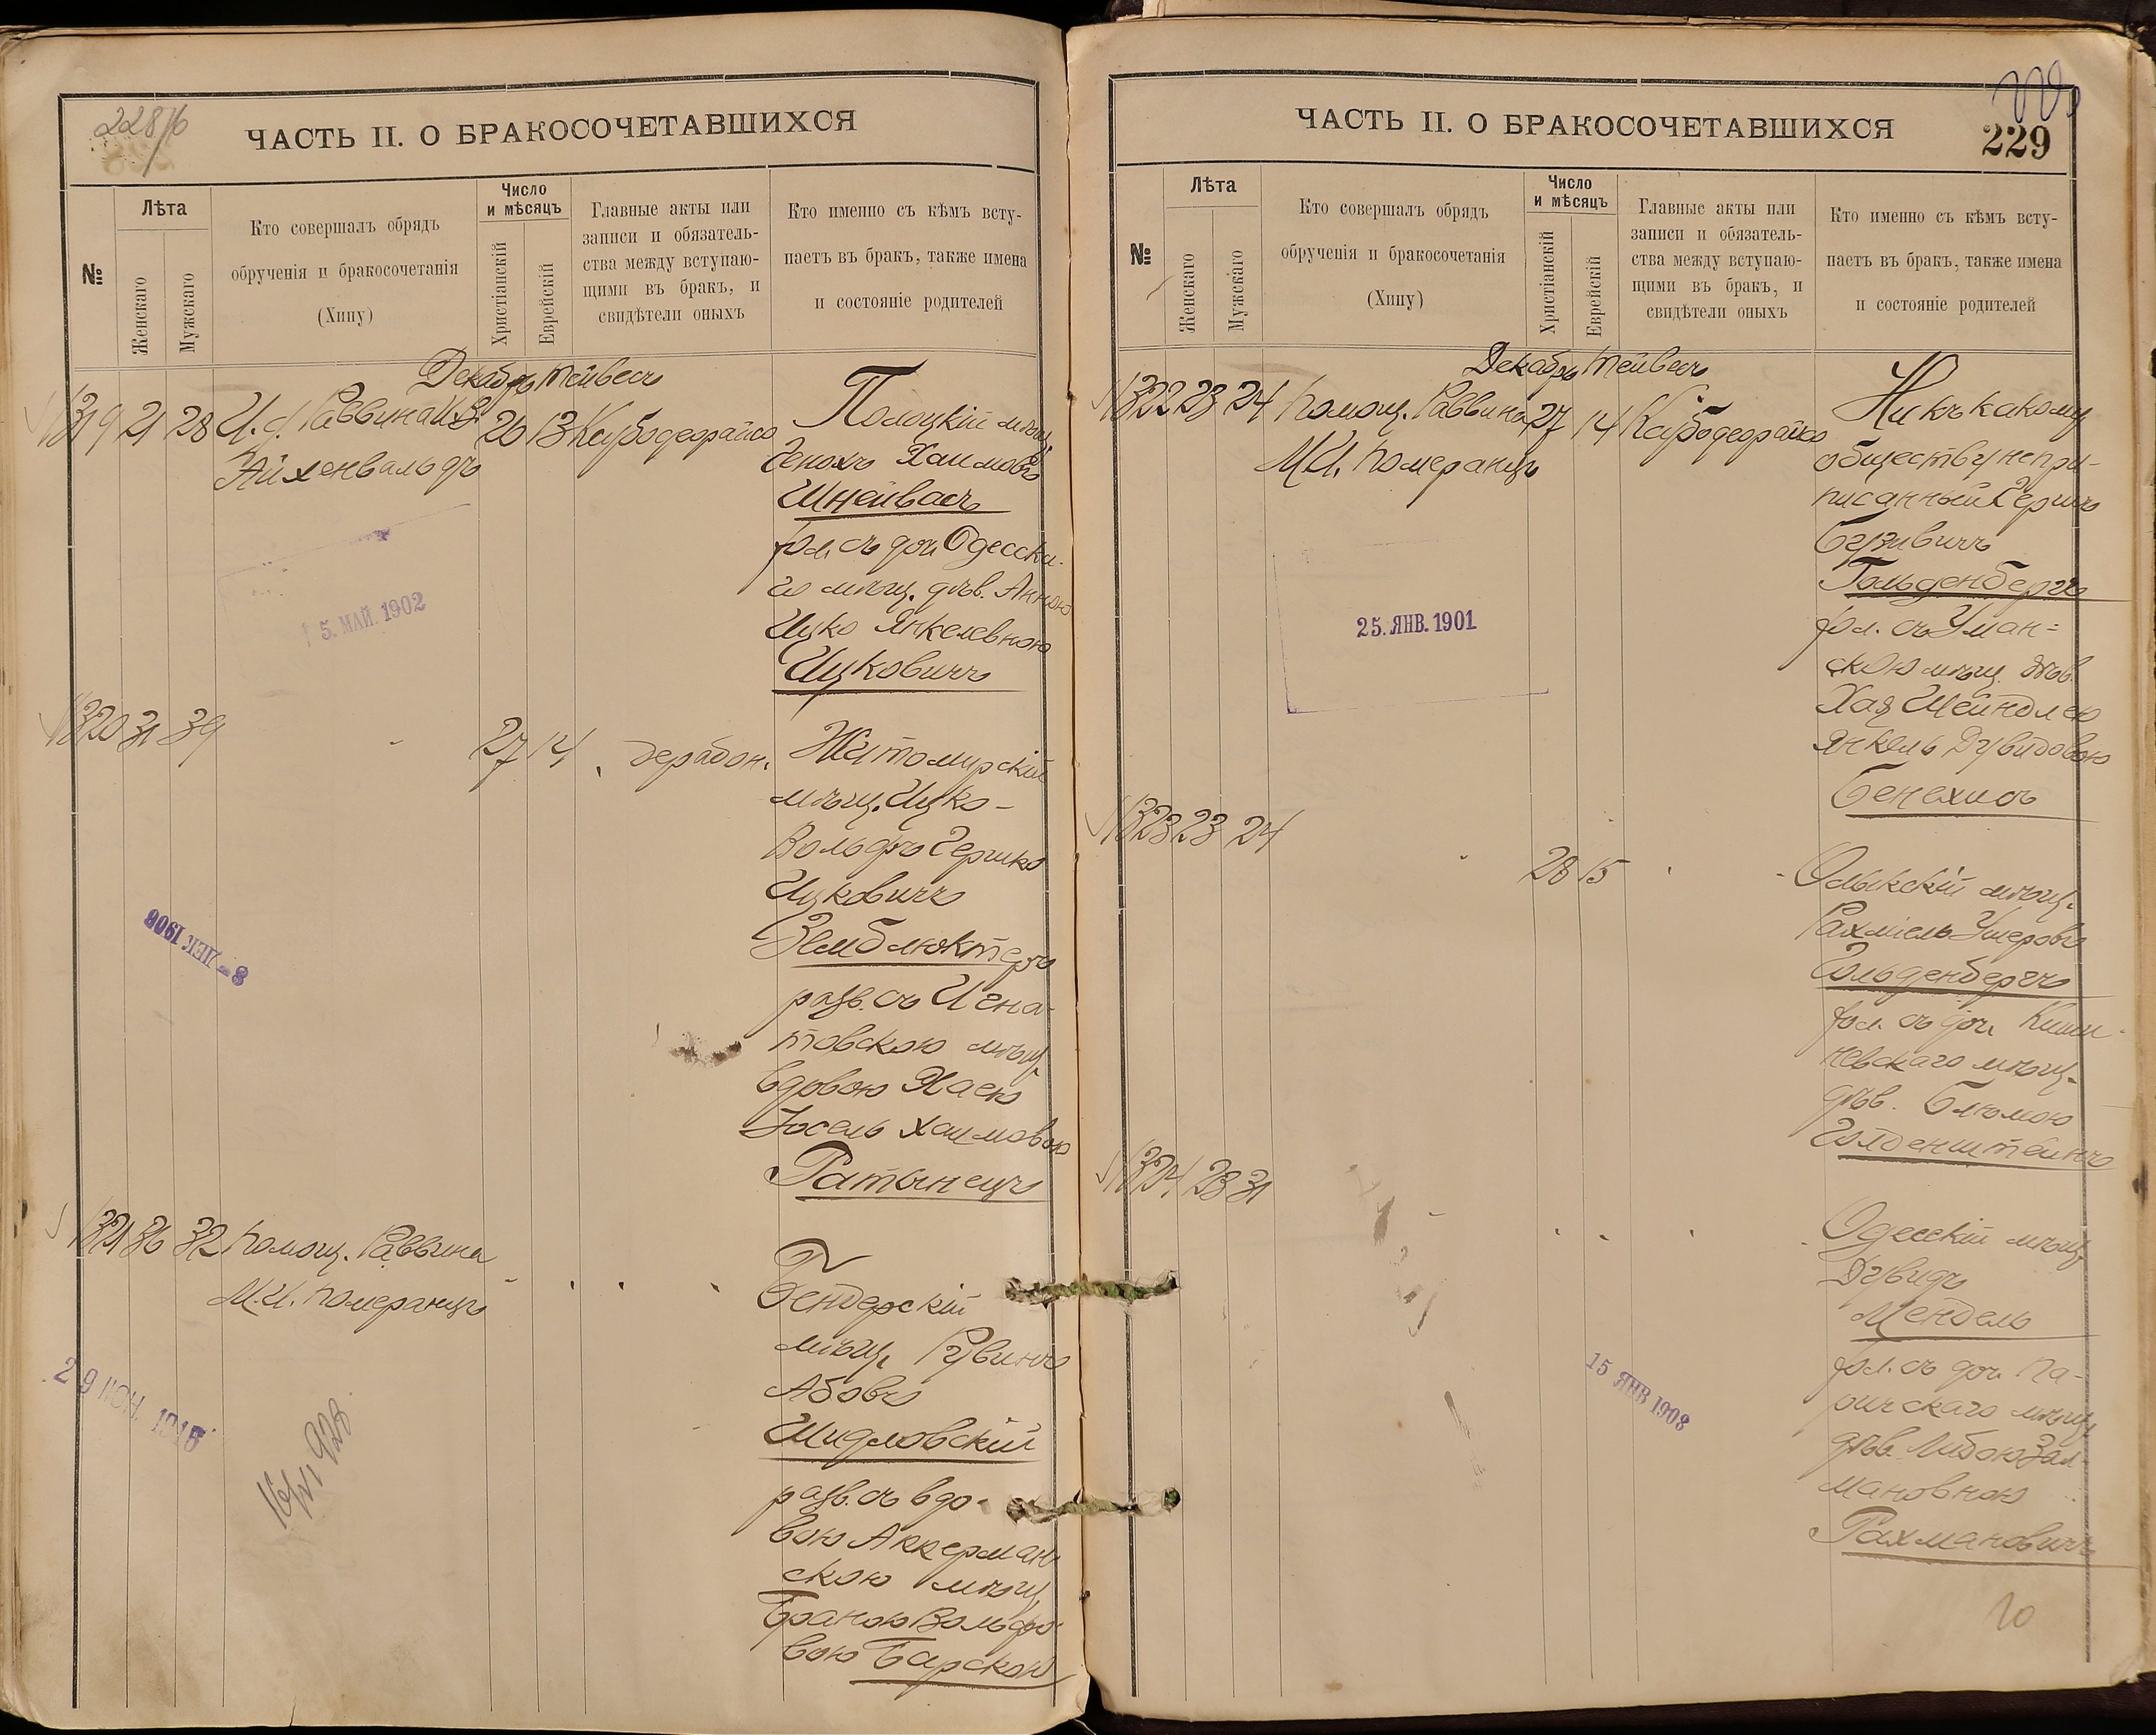 228
ЧАСТЬ II. О БРАКОСОЧЕТАВШИХСЯ
№
Лѣта
Женскаго
Мужскаго
Кто совершалъ обрядъ
обрученія и бракосочетанія
(Хипу)
Число
и мѣсяцъ
Христіанскій
Еврейскій
Главные акты или
записи и обязатель-
ства между вступаю-
щими въ бракъ, и
свидѣтели оныхъ
Кто именно съ кѣмъ всту-
паетъ въ бракъ, также имена
и состояніе родителей
Декабрь Тейвесъ
1319 21 28 И. д. Раввина
Айхенвальдъ
20 13
Полоцкій мѣщ.
Генохъ Хаимовъ
Шнейвасъ
хол. съ доч. Одесска-
го мѣщ. дѣв. Анною
Ицко Янкелевною
Ицковичъ
5. МАЙ. 1902
1320 31 39
27 14
дерабон.
Житомирскій
мѣщ. Ицко-
Вольфъ Гершко
Ицковичъ
Земблюктеръ
разв. съ Игна-
товскою мѣщ.
вдовою Хаею
Іосель Хаимовою
Ратынецъ
8-ДЕК 1906
1321 36 32 Помощ. Раввина
М. И. Померанцъ
Бендерскій
мѣщ. Рувинъ
Абовъ
Шидловскій
разв. съ вдо-
вою Аккерман
скою мѣщ.
Браною Вольфо-
вою Барскою
29 ІЮН. 1916
16/VI 928
229
ЧАСТЬ II. О БРАКОСОЧЕТАВШИХСЯ
№
Лѣта
Женскаго
Мужскаго
Кто совершалъ обрядъ
обрученія и бракосочетанія
(Хипу)
Число
и мѣсяцъ
Христіанскій
Еврейскій
Главные акты или
записи и обязатель-
ства между вступаю-
щими въ бракъ, и
свидѣтели оныхъ
Кто именно съ кѣмъ всту-
паетъ въ бракъ, также имена
и состояніе родителей
Декабрь Тейвесъ
1322 23 24 Помощ. Раввина
М. И. Померанцъ
27 14
Ни къ какому
обществу непри-
писанный Гершъ
Гольденбергъ
хол. съ Уман-
скою мѣщ. дѣв.
Хая Шейндлею
Янкель Дувидовою
Бенехисъ
25. ЯНВ. 1901
1323 23 24
28 15
Олыкскій мѣщ.
Рахміель Умеровъ
Гольденбергъ
хол. съ доч. Киши-
невскаго мѣщ.
дѣв. Блюмою
Голденштейнъ
1324 23 31
Одесскій мѣщ.
Дувидъ
Мендель
хол. съ доч. Па-
ричскаго мѣщ.
дѣв. Либою Зал-
мановною
Рахмановичъ
15 ЯНВ 1908